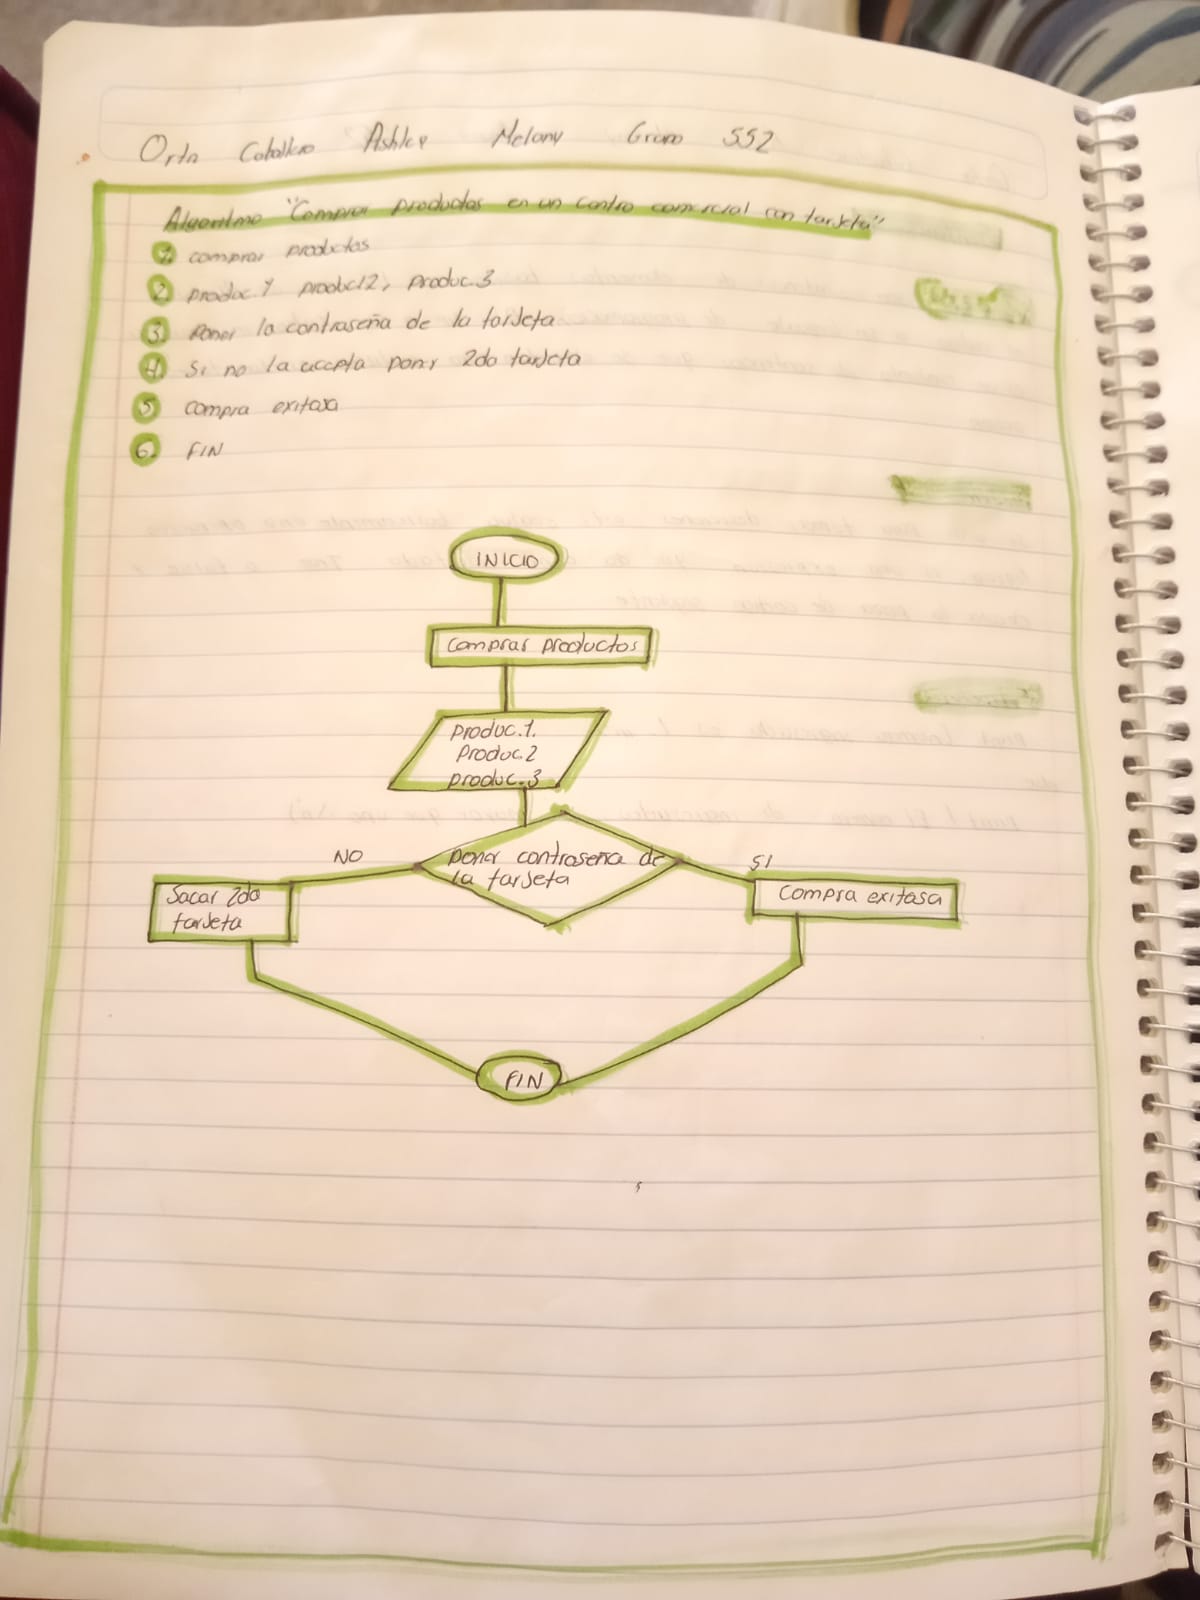 Orta Caballero Ashley Melany Grupo 552
Algoritmo "Comprar productos en un centro comercial con tarjeta"
1. comprar productos
2. produc.1 produc12, produc.3
3. Poner la contraseña de la tarjeta
4. Si no la accpta poner 2do tarjeta
5 compra exitosa
6. FIN
INICIO
Comprar productos
produc.1.
Produc.2
produc.3
NO
poner contraseña de
la tarjeta
SI
Sacar 2do
tarjeta
Compra exitosa
FIN